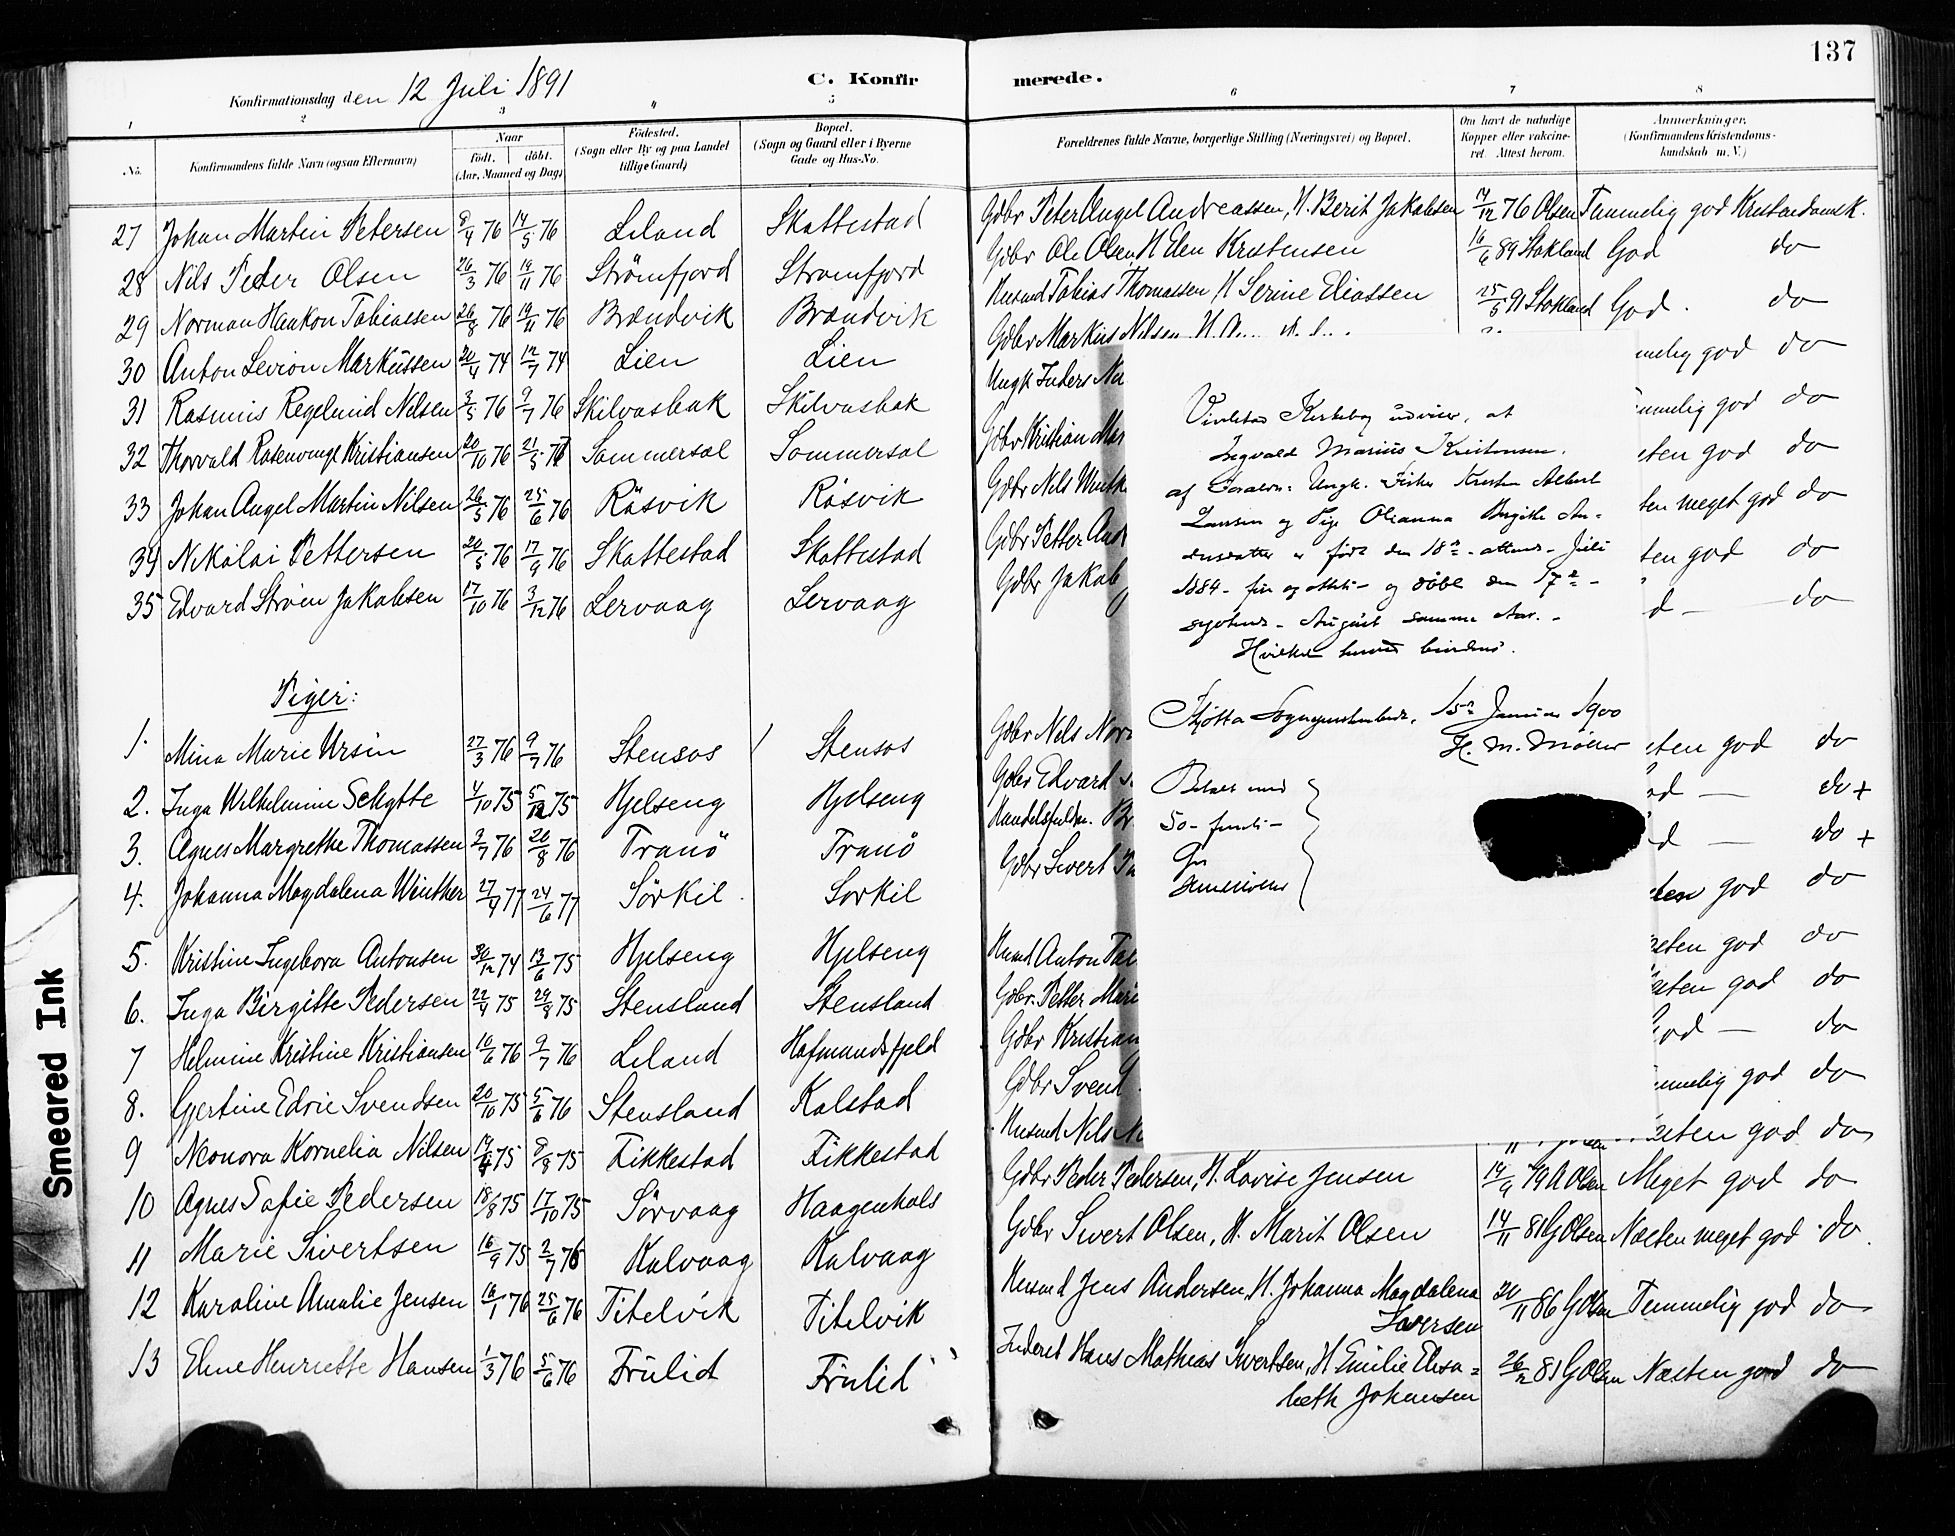 137
Konfirmationsdag den 12 Juli 1891
C. Konfirmerede.
1 2 3 4 5 6 7 8
No. Konfirmandens fulde Navn (ogsaa Efternavn) Naar født. døbt. (Aar, Maaned og Dag) Fødested. (Sogn eller By og paa Landet tillige Gaard) Bopæl. (Sogn og Gaard eller i Byerne Gade og Hus-No. Forældrenes fulde Navne, borgerlige Stilling (Næringsvei) og Bopæl. Om havt de naturlige Kopper eller vaccineret. Attest herom. Anmærkninger. (Konfirmandens Kristendomskundskab m.V.)
27 Johan Martin Petersen 8/4 76 14/5 76 Leland Skattestad Gdbr Peter Angel Andreassen, H. Berit Jakobsen 7/12 76 Olsen Temmelig god Kristendomsk.
28 Nils Peder Olsen 26/3 76 19/11 76 Strømfjord Strømfjord Gdbr Ole Olsen H Elen Kristensen 16/6 89 Stokland God do
29 Norman Haakon Tobiassen 26/8 76 19/11 76 Brændvik Brændvik Husmd Tobias Thomassen H Serine Eliassen 25/5 91 Stokland God. do
30 Anton Levion Markussen 20/4 74 12/7 74 Lien Lien Gdbr Markus Nilsen melig god do
31 Rasmus Regelund Nilsen 3/5 76 9/7 76 Skilvasbak Skilvasbak Ungk Inders mmelig god do
32 Thorvald Rosenvinge Kristiansen 20/10 76 21/5 Sommersel Sommersel Gdbr Kristian Mar sten god do
33 Johan Angel Martin Nilsen 26/5 76 25/6 76 Røsvik Røsvik Gdbr Nils Winth ten meget god do
34 Nikolai Pettersen 20/5 76 17/9 76 Skattestad Skattestad Gdbr Petter And ten god do
35 Edvard Strøm Jakobsen 17/10 76 3/12 76 Lervaag Lervaag Gdbr Jakob d — do
Piger:
1. Mina Marie Ursin 27/3 76 9/7 76 Stensøs Stensøs Gdbr Nils Nor sten god do
2. Inga Wilhelmine Schytte 4/10 75 5/12 75 Hjelseng Hjelseng Gdbr Edvard od — do +
3. Agnes Margrethe Thomassen 2/7 76 20/8 76 Tranø Tranø Handelsfuldm. Br d — do +
4. Johanna Magdalena Winther 27/4 77 24/6 77 Sørkil Sørkil Gdbr Sivert sten god do
5. Kristine Ingeborg Antonsen 30/12 74 13/6 75 Hjelseng Hjelseng Husmd Anton æsten god do
6. Inga Birgitte Pedersen 22/4 75 29/8 75 Stensland Stensland Gdbr. Petter Mari æsten god do
7 Helmine Kristine Kristiansen 10/6 76 9/7 76 Leland Hafmandsfjeld Gdbr Kristian od — do
8. Gjertine Edvie Svendsen 20/10 75 5/6 76 Stensland Kalstad Gdbr Svend mmelig god do
9 Neonora Kornelia Nilsen 14/4 75 8/8 75 Fikkestad Fikkestad Husmd Nils æsten god do
10 Agnes Sofie Pedersen 18/8 75 17/10 75 Sørvaag Haagenhals Gdbr Peder Pedersen, H. Lovise Jensen 14/9 79 A Olsen Meget god do
11 Marie Sivertsen 16/9 75 2/7 76 Kalvaag Kalvaag Gdbr Sivert Olsen, H. Marit Olsen 14/11 81 G Olsen Næsten meget god do
12 Karoline Amalie Jensen 16/1 76 25/6 76 Titelvik Titelvik Husmd Jens Andersen, H. Johanna Magdalena Iversen 20/11 86 G Olsen Temmelig god do
13 Eline Henriette Hansen 1/3 76 5/6 76 Frulid Frulid Inderst Hans Mathias Sivertsen, H Emilie Elisabeth Johansen 26/2 81 G Olsen Næsten god do
Kirkebog udviser, at
Ingvald Marius Kristensen.
af Foræld: Ungk. Fisker Kristen Albert
Larsen og Pige Oleanna Birgitte An-
dersdatter er født den 18de - attende - Juli
1884 - fire og otteti - og døbt den 17de -
syttende - August samme Aar. -
Hvilket herved bevidnes.
Tjøtta Sognepræstembede, 15de Januar 1900
H. M. Møller
Betalt med
50 - femti -
Øre
HMMøller
Smeared Ink